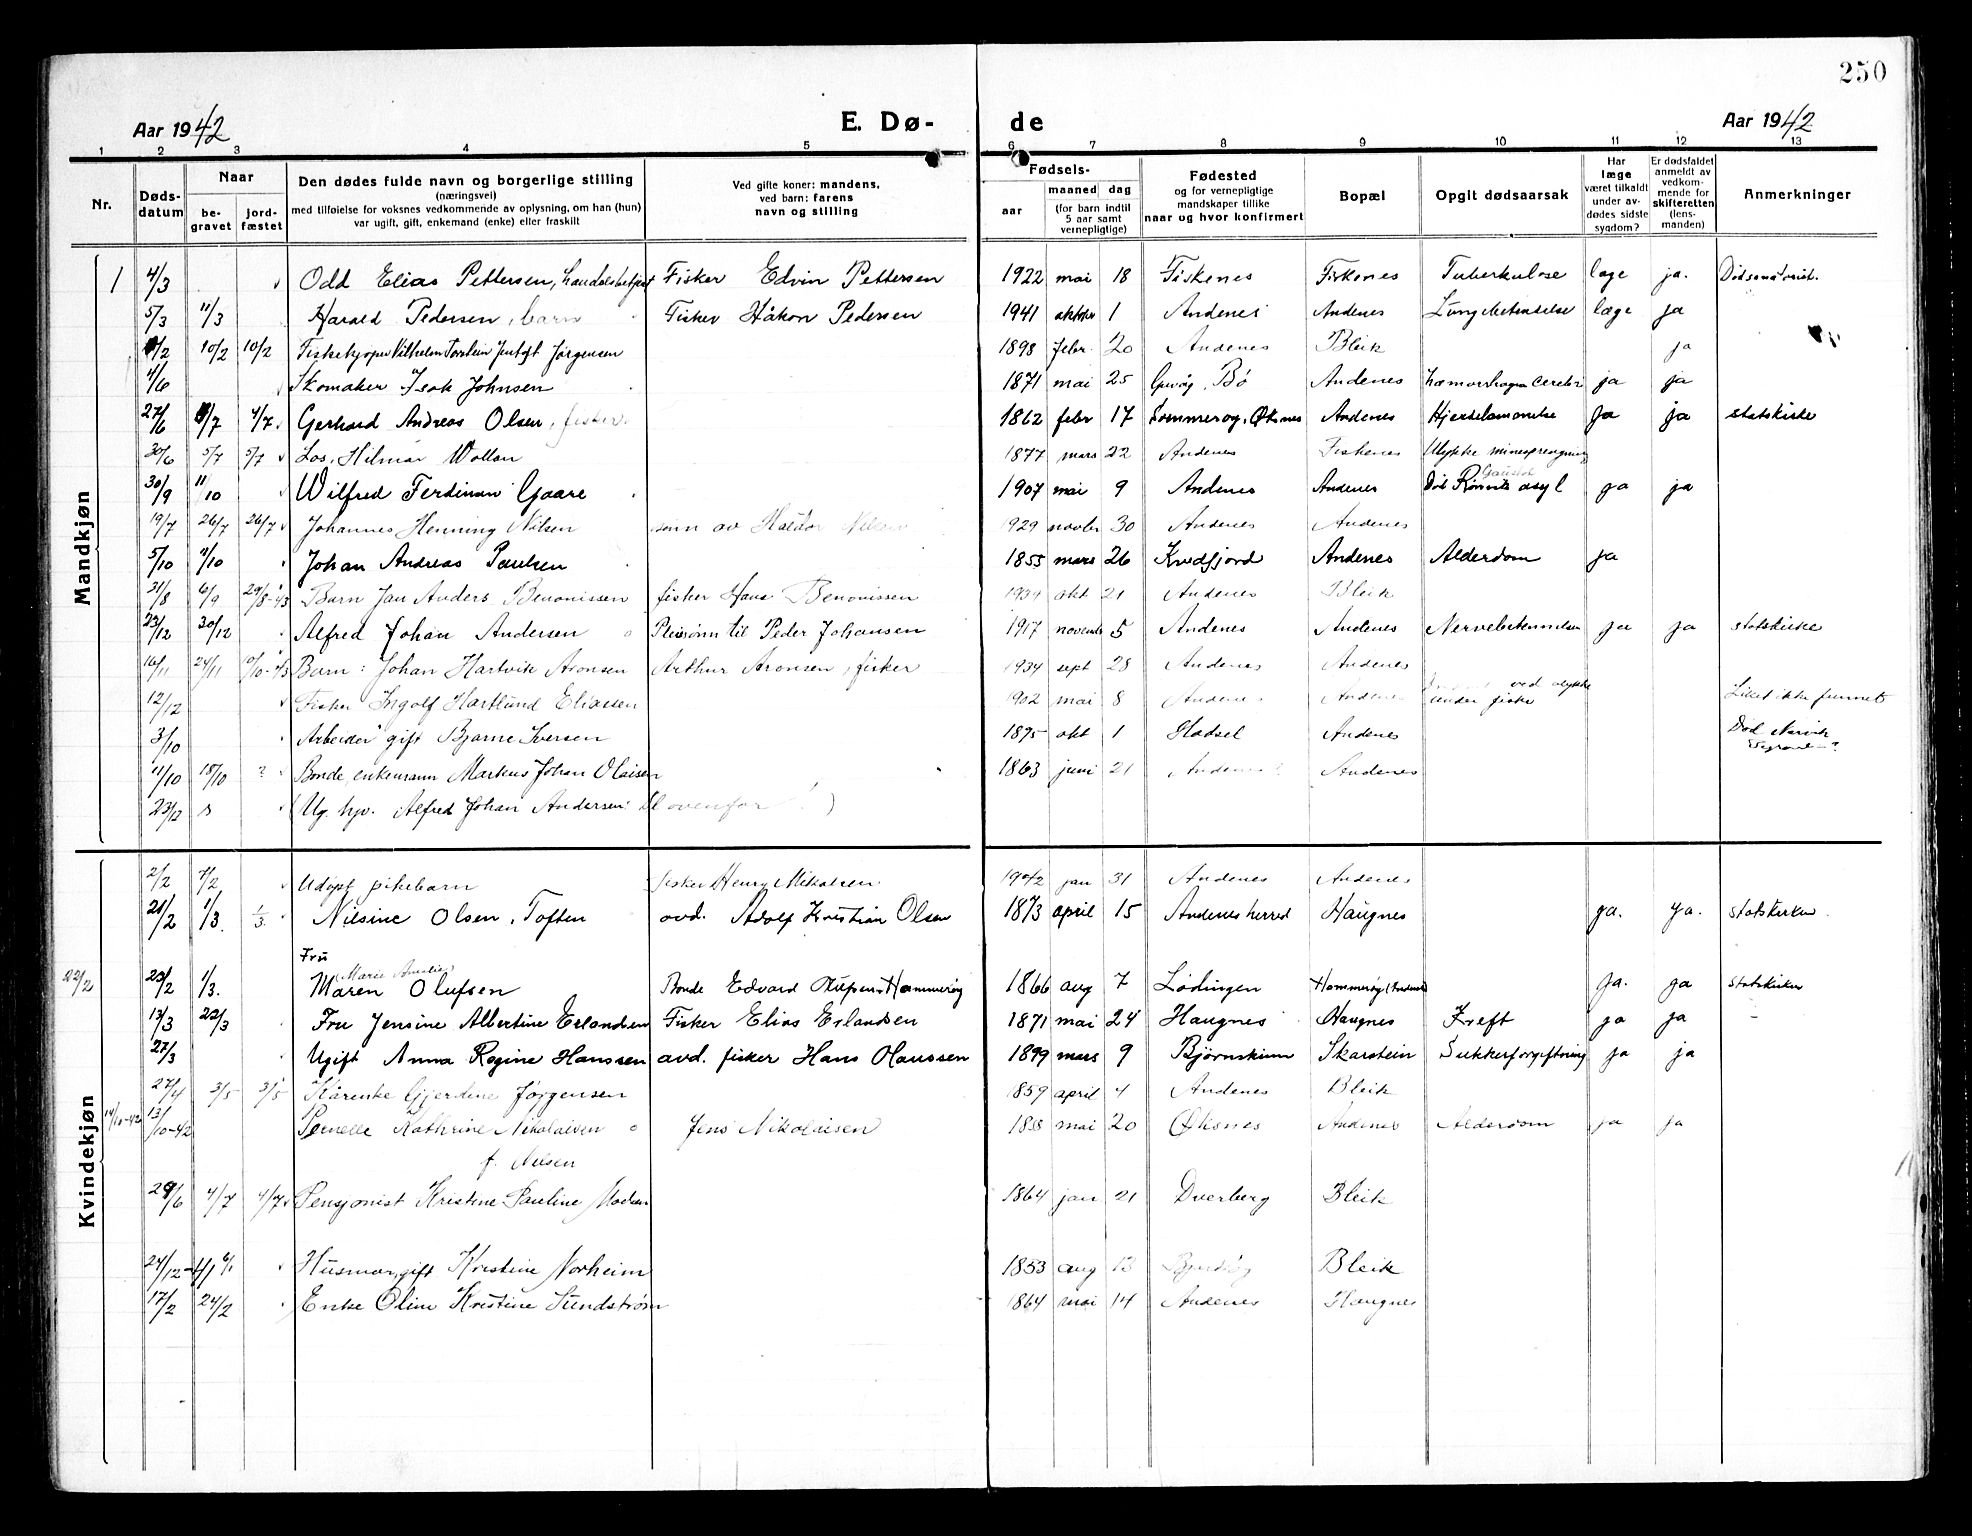 250
Aar 1942 E. Dø- de Aar 1942
1 2 3 4 5 6 7 8 9 10 11 12 13
Nr. Dødsdatum Naar begravet jordfæstet
Den dødes fulde navn og borgerlige stilling
(næringsvei)
med tilføielse for voksnes vedkommende av oplysning, om han (hun)
var ugift, gift, enkemand (enke) eller fraskilt
Ved gifte koner: mandens,
ved barn: farens
navn og stilling
Fødsels-
aar maaned dag
(for barn indtil
5 aar samt
vernepligtige)
Fødested
og for vernepligtige
mandskaper tillike
naar og hvor konfirmert
Bopæl
Opgit dødsaarsak
Har
læge
været tilkaldt
under av-
dødes sidste
sygdom?
Er dødsfaldet
anmeldt av
vedkom-
mende for
skifteretten
(lens-
manden)
Anmerkninger
Mandkjøn
1 4/3 Odd Elias Pettersen, Fisker Edvin Pettersen 1922 mai 18 Fiskenes Fiskenes Tuberkulose læge ja.
5/3 11/3 Harald Pedersen, barn Fisker Håkon Pedersen 1941 1 Andenes Andenes læge ja
10/2 10/2 Vilhelm Torstein Jørgensen 1898 febr. 20 Andenes Bleik ja
4/6 Skomaker Isak Johnsen 1871 mai 25 Bø Andenes ja ja
27/6 4/7 4/7 Gerhard Andreas Olsen, fisker 1862 febr 17 Andenes ja ja statskirke
30/6 5/7 5/7 Los. Hilmar Wollan 1877 mars 22 Andenes Fiskenes Ulykke minesprengning
30/9 11/10 Wilfred Ferdinan Gaare 1907 mai 9 Andenes Andenes Gaustad asyl ja ja
19/7 26/7 26/7 Johannes Henning Nilsen sønn av Haldor Nilsen 1929 30 Andenes Andenes
5/10 11/10 Johan Andreas Paulsen 1855 mars 26 Kvedfjord Andenes Alderdom ja
31/8 6/9 29/8-43 Barn Jan Anders Benonissen fisker Hans Benonissen 1934 okt 21 Andenes Bleik
23/12 30/12 Alfred Johan Andersen Pleiesønn til Peder Johansen 1917 5 Andenes Andenes ja ja statskirke
16/11 24/11 10/10-43 Barn: Johan Hartvik Aronsen Arthur Aronsen, fisker 1934 sept 28 Andenes Andenes
12/12 Fisker Ingolf Hartlund Eliassen 1902 mai 8 Andenes Andenes ved ulykke under fiske Liket ikke funnet
3/10 Arbeider gift Bjarne Iversen 1895 okt 1 Hadsel Andenes Død Narvik
11/10 18/10 ? Bonde, enkemann Markus Johan Olaisen 1863 juni 21 Andenes? Andenes
23/12 (Ug. hjv. Alfred Johan Andersen: ovenfor!)
Kvindekjøn
2/2 7/2 Udøpt pikebarn fisker Henry Mikalsen 1942 jan 31 Andenes Andenes
21/2 1/3. 1/3. Nilsine Olsen, Toften avd. Adolf Kristian Olsen 1873 april 15 Andenes herred Haugnes ja. ja. statskirken.
Fru
22/2 1/3. Maren Olufsen Bonde Edvard 1866 aug 7 Lødingen ja. ja statskirken
13/3 22/3 Fru Jensine Albertine Erlandsen Fisker Elias Erlandsen 1871 mai 24 Haugnes Haugnes Kreft ja ja
27/3 Ugift Anna Regine Hanssen avd. fisker Hans Hanssen 1899 mars 9 Bjørnskinn Skarstein Sukkerforgiftning ja ja
27/4 3/5 3/5 Gjerdine Jørgensen 1859 april 4 Andenes Bleik
14/10-42 13/10-42 Pernelle Kathrine Nikolaisen Jens Nikolaisen mai 20 Øksnes Andenes Alderdom ja ja
f. Nilsen
4/7 4/7 Pensjonist Kristine Pauline Madsen 1864 jan 21 Dverberg Bleik
24/12 6/1 Husmor, gift Kristine Norheim 1853 aug 13 Bleik
17/2 24/2 Enke Oline Kristine Sundstrøm 1864 mai 14 Andenes Haugnes